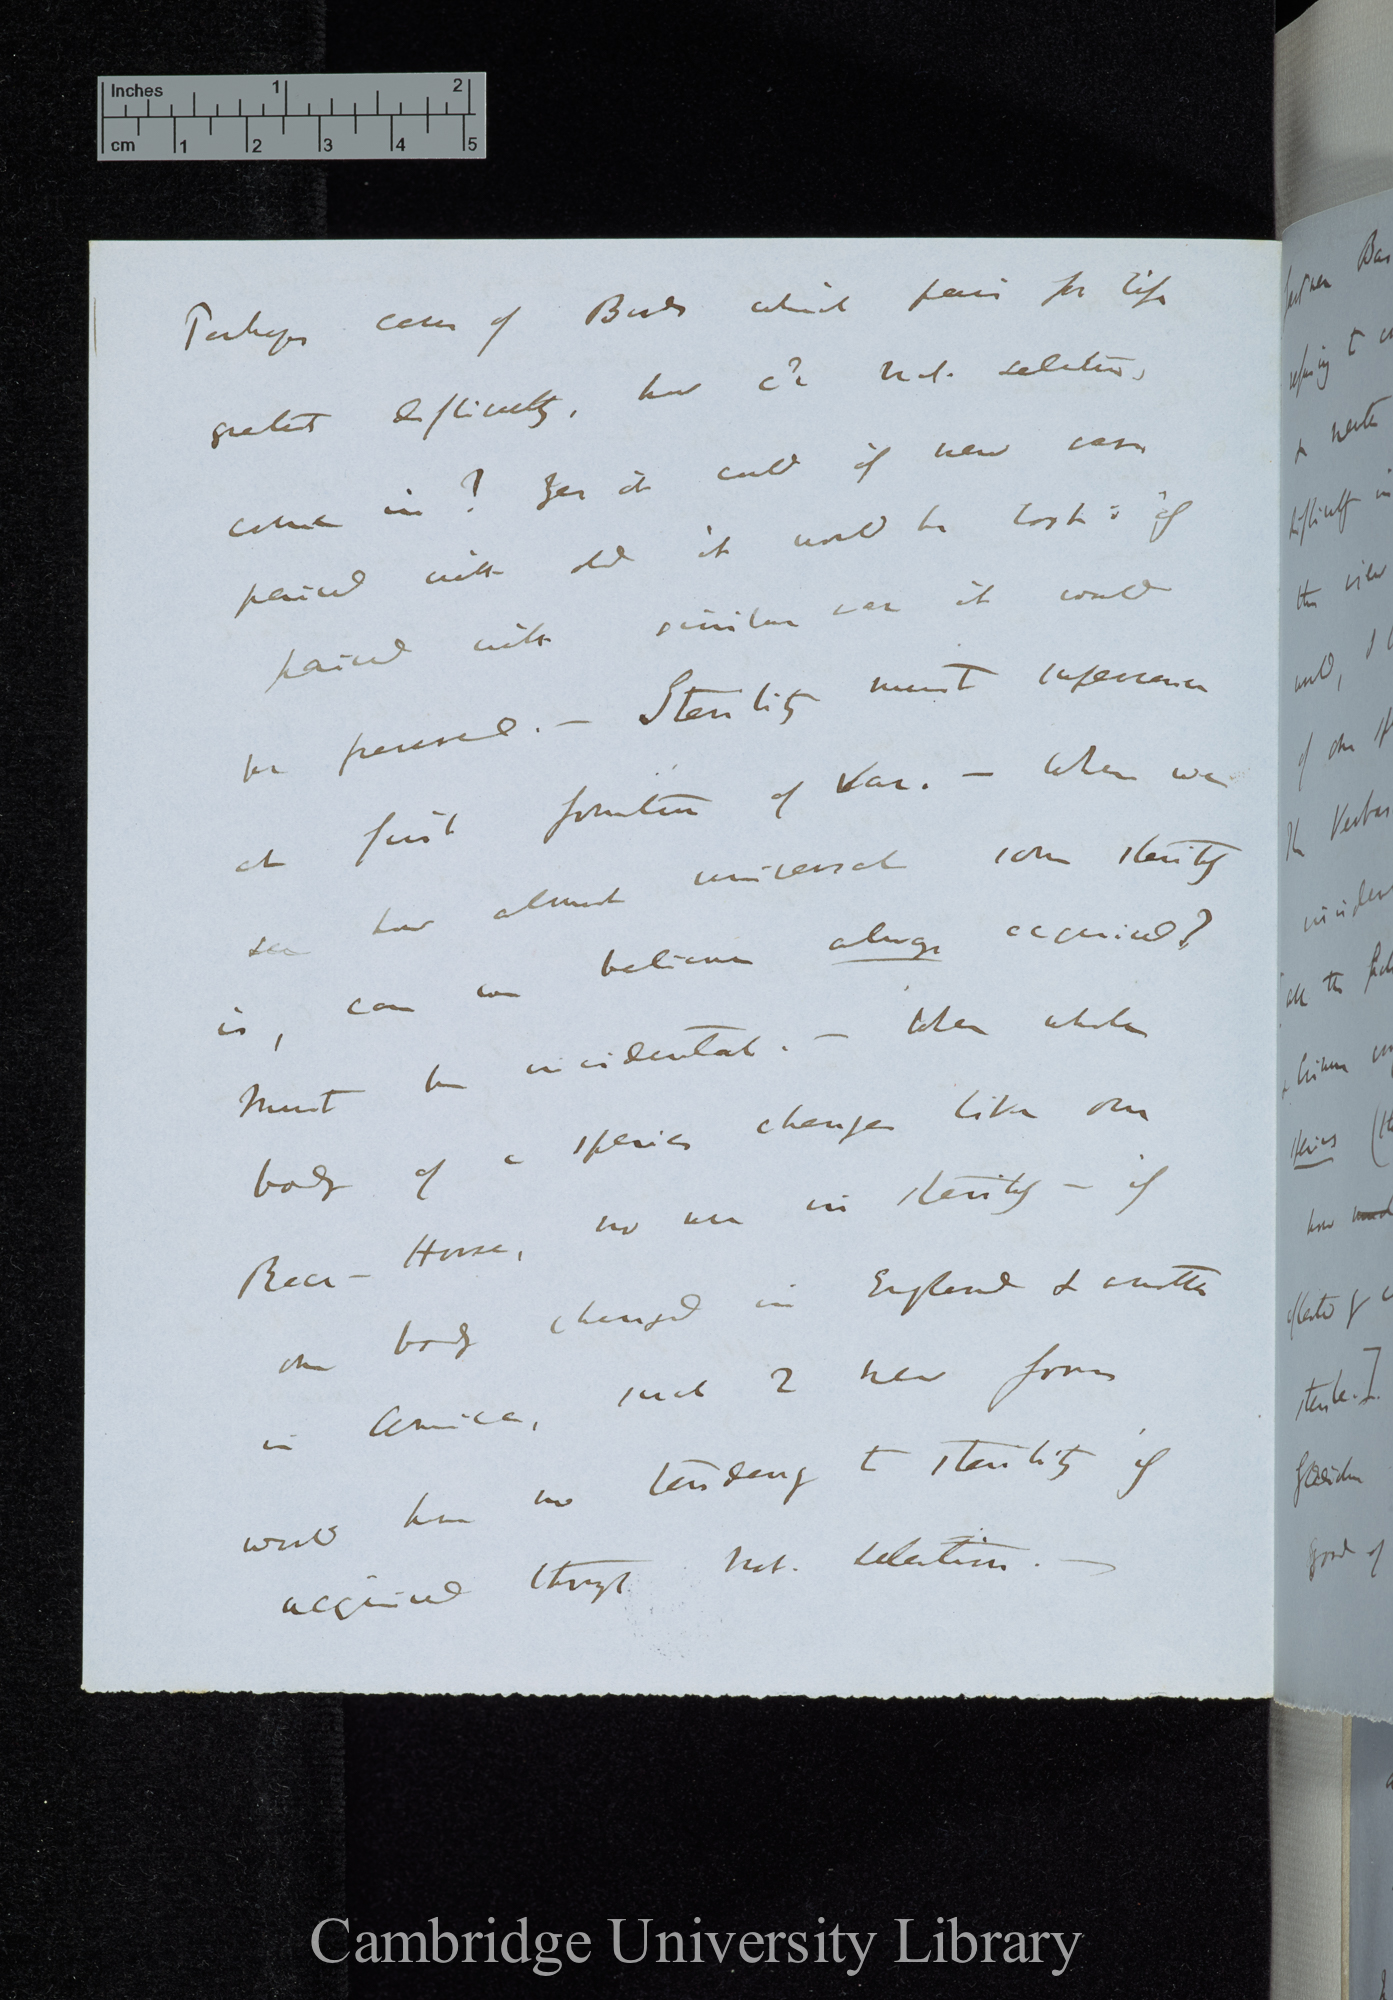 Inches 1 2
cm 1 2 3 4 5
Perhaps case of Birds which pair for life
greatest difficulty, how cd nat. selection
come in? Yes it could if new var
paired with old it would be lost: if
paired with similar var it would
be preserved. — Sterility must supervene
at first formation of Var. — When we
see how almost universal some sterility
is, can we believe always acquired?
Must be incidental. — When whole
body of a species changes like our
Race-Horse, no use in sterility — if
one body changed in England & another
in America, such 2 new forms
would have no tendency to sterility if
acquired through Nat. selection. —
all the
difficulty in
the view
Cambridge University Library